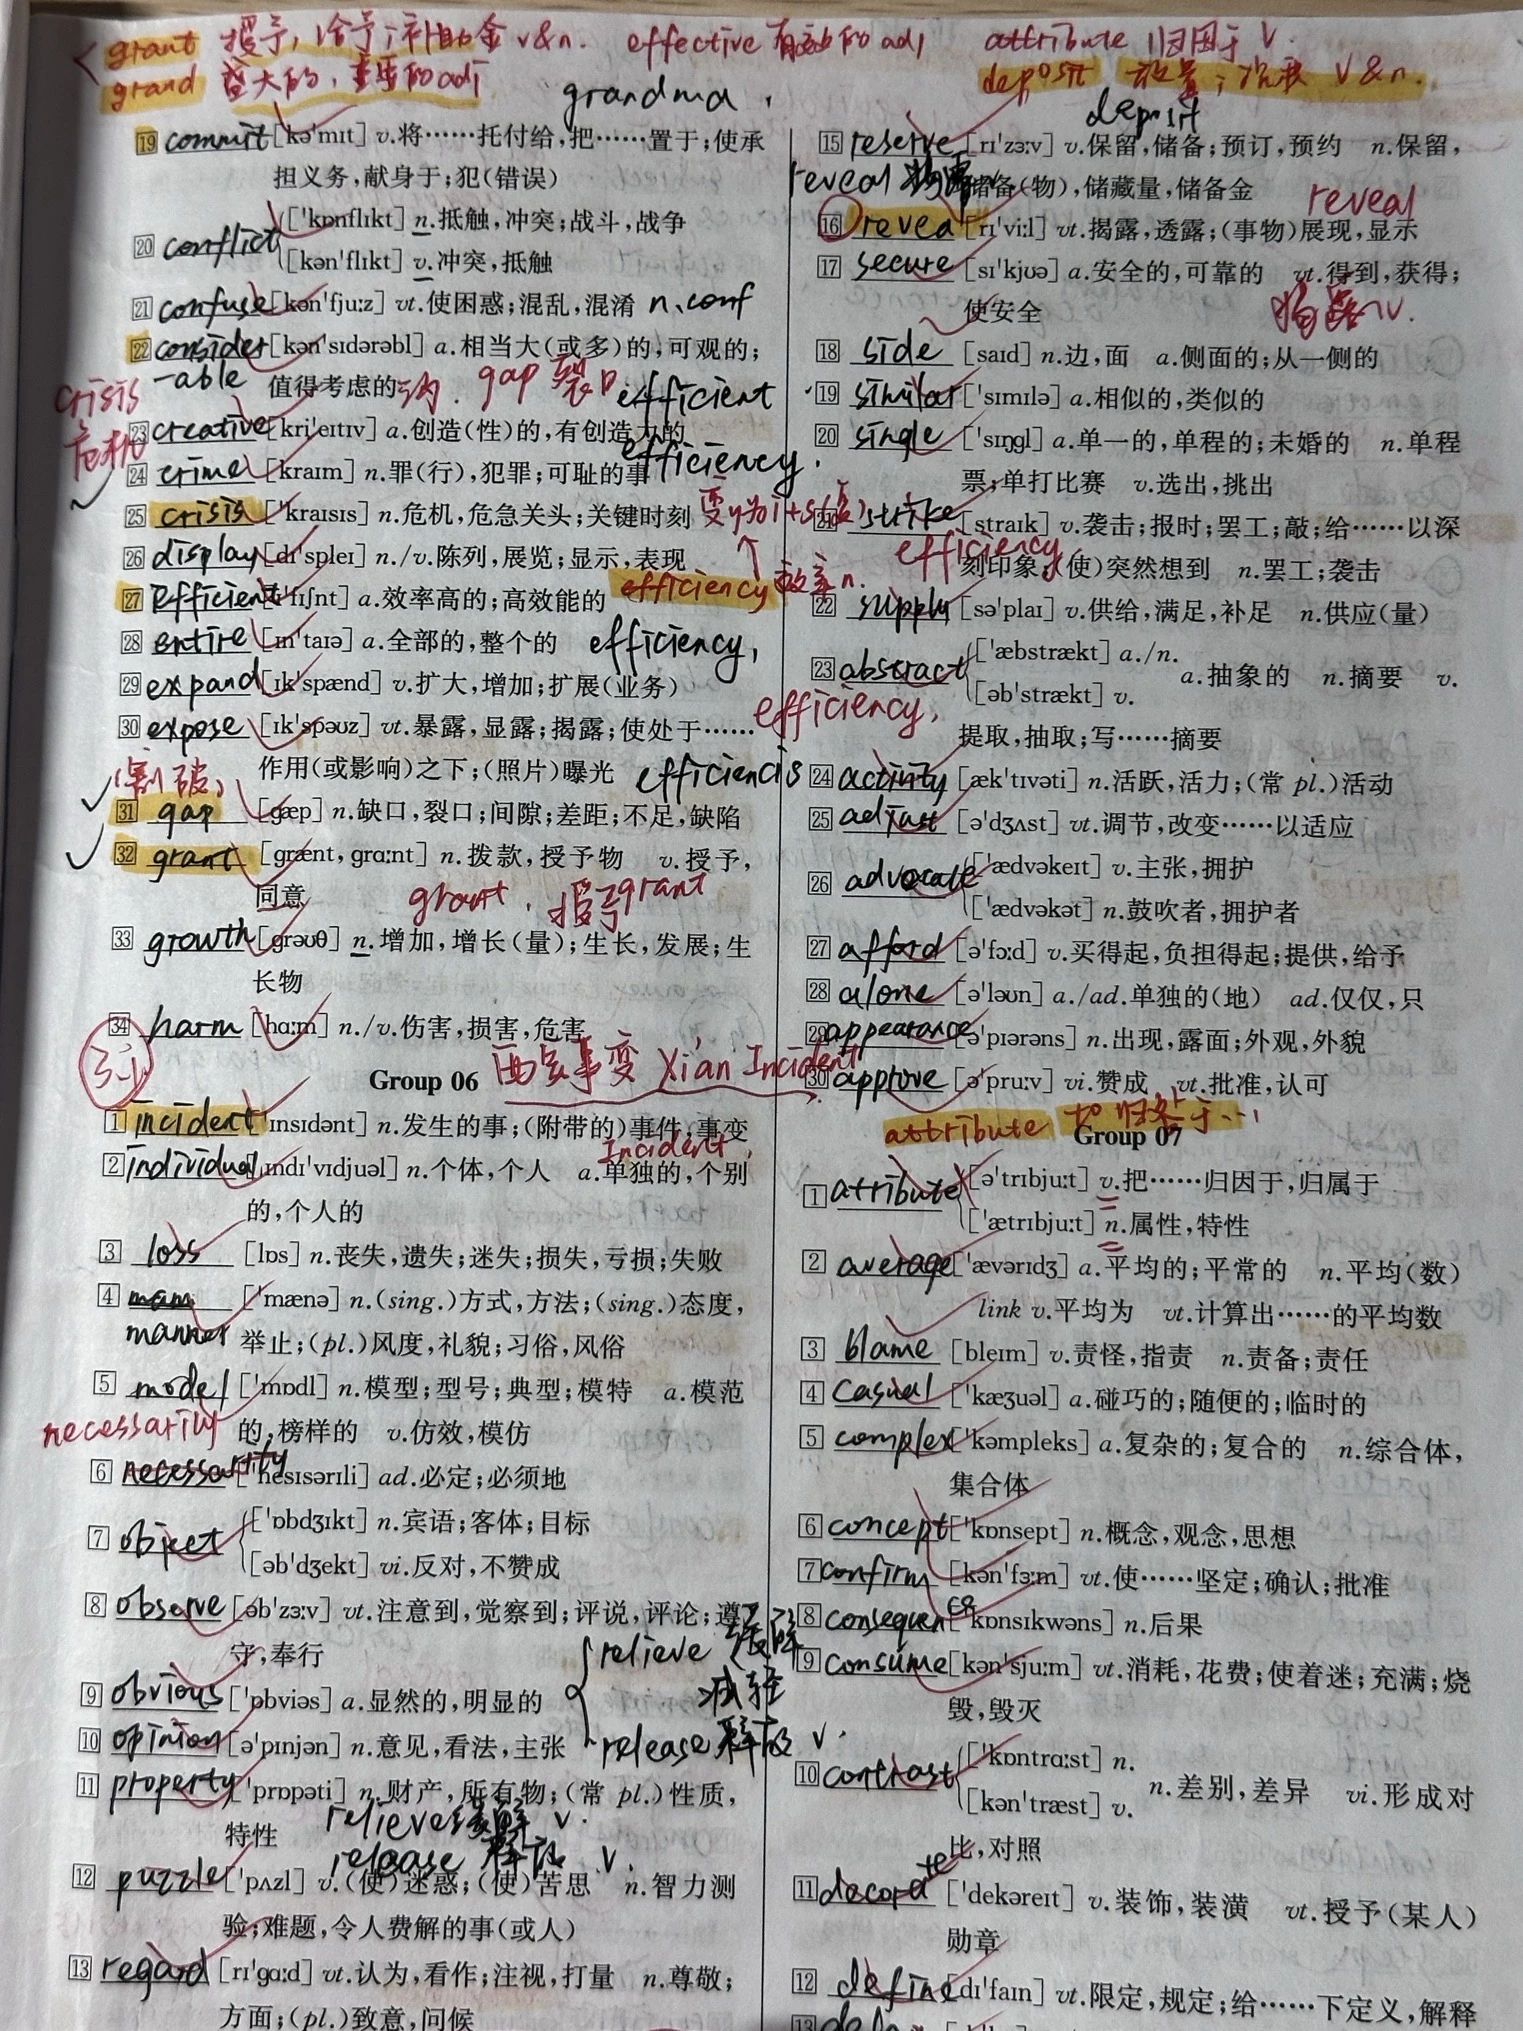 grant 授予,给予;补助金 v&n. effective 有效的 adj attribute 归因于 v.
grand 盛大的,重要的 adj deposit 放置;沉积 v&n.
grandma, deposit
19 commit [kə'mɪt] v.将……托付给,把……置于;使承
担义务,献身于;犯(错误)
20 conflict ['kɒnflɪkt] n.抵触,冲突;战斗,战争
[kən'flɪkt] v.冲突,抵触
21 confuse [kən'fju:z] vt.使困惑;混乱,混淆 n. conf
22 consider [kən'sɪdərəbl] a.相当大(或多)的,可观的;
-able 值得考虑的 gap 裂口 efficient
crisis
危机
23 creative [kri'eɪtɪv] a.创造(性)的,有创造力的
efficiency.
24 crime [kraɪm] n.罪(行),犯罪;可耻的事
25 crisis ['kraɪsɪs] n.危机,危急关头;关键时刻 变y为i+es(复)
26 display [dɪ'spleɪ] n./v.陈列,展览;显示,表现
27 Efficient [ɪ'fɪʃnt] a.效率高的;高效能的 efficiency 效率 n.
28 entire [ɪn'taɪə] a.全部的,整个的 efficiency,
29 expand [ɪk'spænd] v.扩大,增加;扩展(业务)
efficiency,
30 expose [ɪk'spəʊz] vt.暴露,显露;揭露;使处于……
作用(或影响)之下;(照片)曝光 efficiencis
(割破)
31 gap [gæp] n.缺口,裂口;间隙;差距;不足,缺陷
32 grant [grænt, grɑ:nt] n.拨款,授予物 v.授予,
同意 grant, 授予 grant
33 growth [grəʊθ] n.增加,增长(量);生长,发展;生
长物
34 harm [hɑ:m] n./v.伤害,损害,危害
Group 06 西安事变 Xi'an Incident
1 incident ['ɪnsɪdənt] n.发生的事;(附带的)事件,事变
Incident,
2 individual [ˌɪndɪ'vɪdjuəl] n.个体,个人 a.单独的,个别
的,个人的
3 loss [lɒs] n.丧失,遗失;迷失;损失,亏损;失败
4 ['mænə] n.(sing.)方式,方法;(sing.)态度,
manner 举止;(pl.)风度,礼貌;习俗,风俗
5 model ['mɒdl] n.模型;型号;典型;模特 a.模范
necessarily 的,榜样的 v.仿效,模仿
6 necessarily ['nesɪsərɪli] ad.必定;必须地
7 object ['ɒbdʒɪkt] n.宾语;客体;目标
[əb'dʒekt] vi.反对,不赞成
8 observe [əb'zɜ:v] vt.注意到,觉察到;评说,评论;遵
守,奉行 relieve 缓解
减轻
9 obvious ['ɒbviəs] a.显然的,明显的
10 opinion [ə'pɪnjən] n.意见,看法,主张 release 释放 v.
11 property ['prɒpəti] n.财产,所有物;(常 pl.)性质,
特性 relieve 缓解 v.
release 释放 v.
12 puzzle ['pʌzl] v.(使)迷惑;(使)苦思 n.智力测
验;难题,令人费解的事(或人)
13 regard [rɪ'gɑ:d] vt.认为,看作;注视,打量 n.尊敬;
方面;(pl.)致意,问候
15 reserve [rɪ'zɜ:v] v.保留,储备;预订,预约 n.保留,
reveal 储备(物),储藏量,储备金 reveal
16 revea [rɪ'vi:l] vt.揭露,透露;(事物)展现,显示
17 secure [sɪ'kjʊə] a.安全的,可靠的 vt.得到,获得;
使安全 揭露 v.
18 side [saɪd] n.边,面 a.侧面的;从一侧的
19 similar ['sɪmɪlə] a.相似的,类似的
20 single ['sɪŋgl] a.单一的,单程的;未婚的 n.单程
票;单打比赛 v.选出,挑出
21 strike [straɪk] v.袭击;报时;罢工;敲;给……以深
efficiency, 刻印象;(使)突然想到 n.罢工;袭击
22 supply [sə'plaɪ] v.供给,满足,补足 n.供应(量)
23 abstract ['æbstrækt] a./n. a.抽象的 n.摘要 v.
[əb'strækt] v.
提取,抽取;写……摘要
24 activity [æk'tɪvəti] n.活跃,活力;(常 pl.)活动
25 adjust [ə'dʒʌst] vt.调节,改变……以适应
26 advocate ['ædvəkeɪt] v.主张,拥护
['ædvəkət] n.鼓吹者,拥护者
27 afford [ə'fɔ:d] v.买得起,负担得起;提供,给予
28 alone [ə'ləʊn] a./ad.单独的(地) ad.仅仅,只
29 appearance [ə'pɪərəns] n.出现,露面;外观,外貌
30 approve [ə'pru:v] vi.赞成 vt.批准,认可
attribute 把归咎于…
Group 07
1 attribute [ə'trɪbju:t] v.把……归因于,归属于
['ætrɪbju:t] n.属性,特性
2 average ['ævərɪdʒ] a.平均的;平常的 n.平均(数)
link v.平均为 vt.计算出……的平均数
3 blame [bleɪm] v.责怪,指责 n.责备;责任
4 casual ['kæʒuəl] a.碰巧的;随便的;临时的
5 complex ['kəmpleks] a.复杂的;复合的 n.综合体,
集合体
6 concept ['kɒnsept] n.概念,观念,思想
7 confirm [kən'fɜ:m] vt.使……坚定;确认;批准
8 consequence ['kɒnsɪkwəns] n.后果
9 consume [kən'sju:m] vt.消耗,花费;使着迷;充满;烧
毁,毁灭
10 contrast ['kɒntrɑ:st] n. n.差别,差异 vi.形成对
[kən'træst] v.
比,对照
11 decorate ['dekəreɪt] v.装饰,装潢 vt.授予(某人)
勋章
12 define [dɪ'faɪn] vt.限定,规定;给……下定义,解释
13